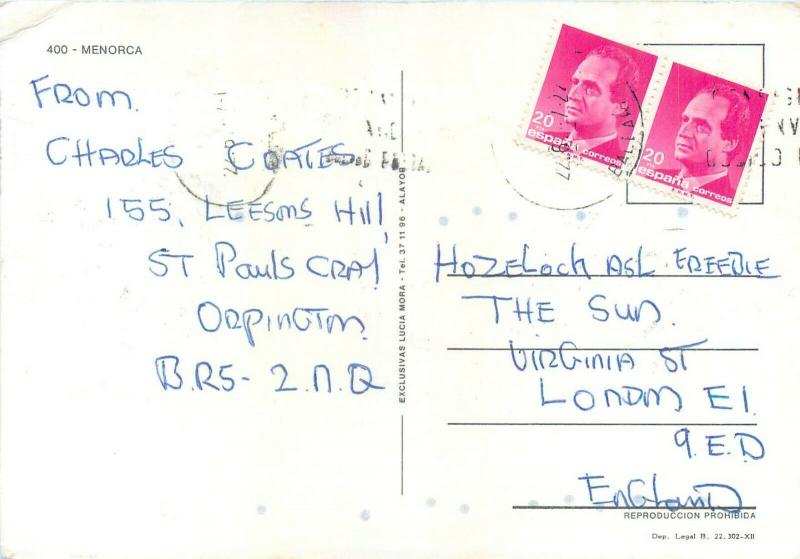 400 - MENORCA
FROM.
CHARLES COATES.
155, LEESONS Hill,
ST Pauls CRAY
ORPINGTON.
B.R5- 2.N.Q
EXCLUSIVAS LUCIA MORA - Tel. 37 11 96 - ALAYOR
20
españa correos
20
españa correos
HOZELOCK ASL FREEBIE
THE SUN.
VIRGINIA ST
LONDON E1.
9.E.D
ENGLAND
REPRODUCCION PROHIBIDA
Dep. Legal B. 22.302-XII